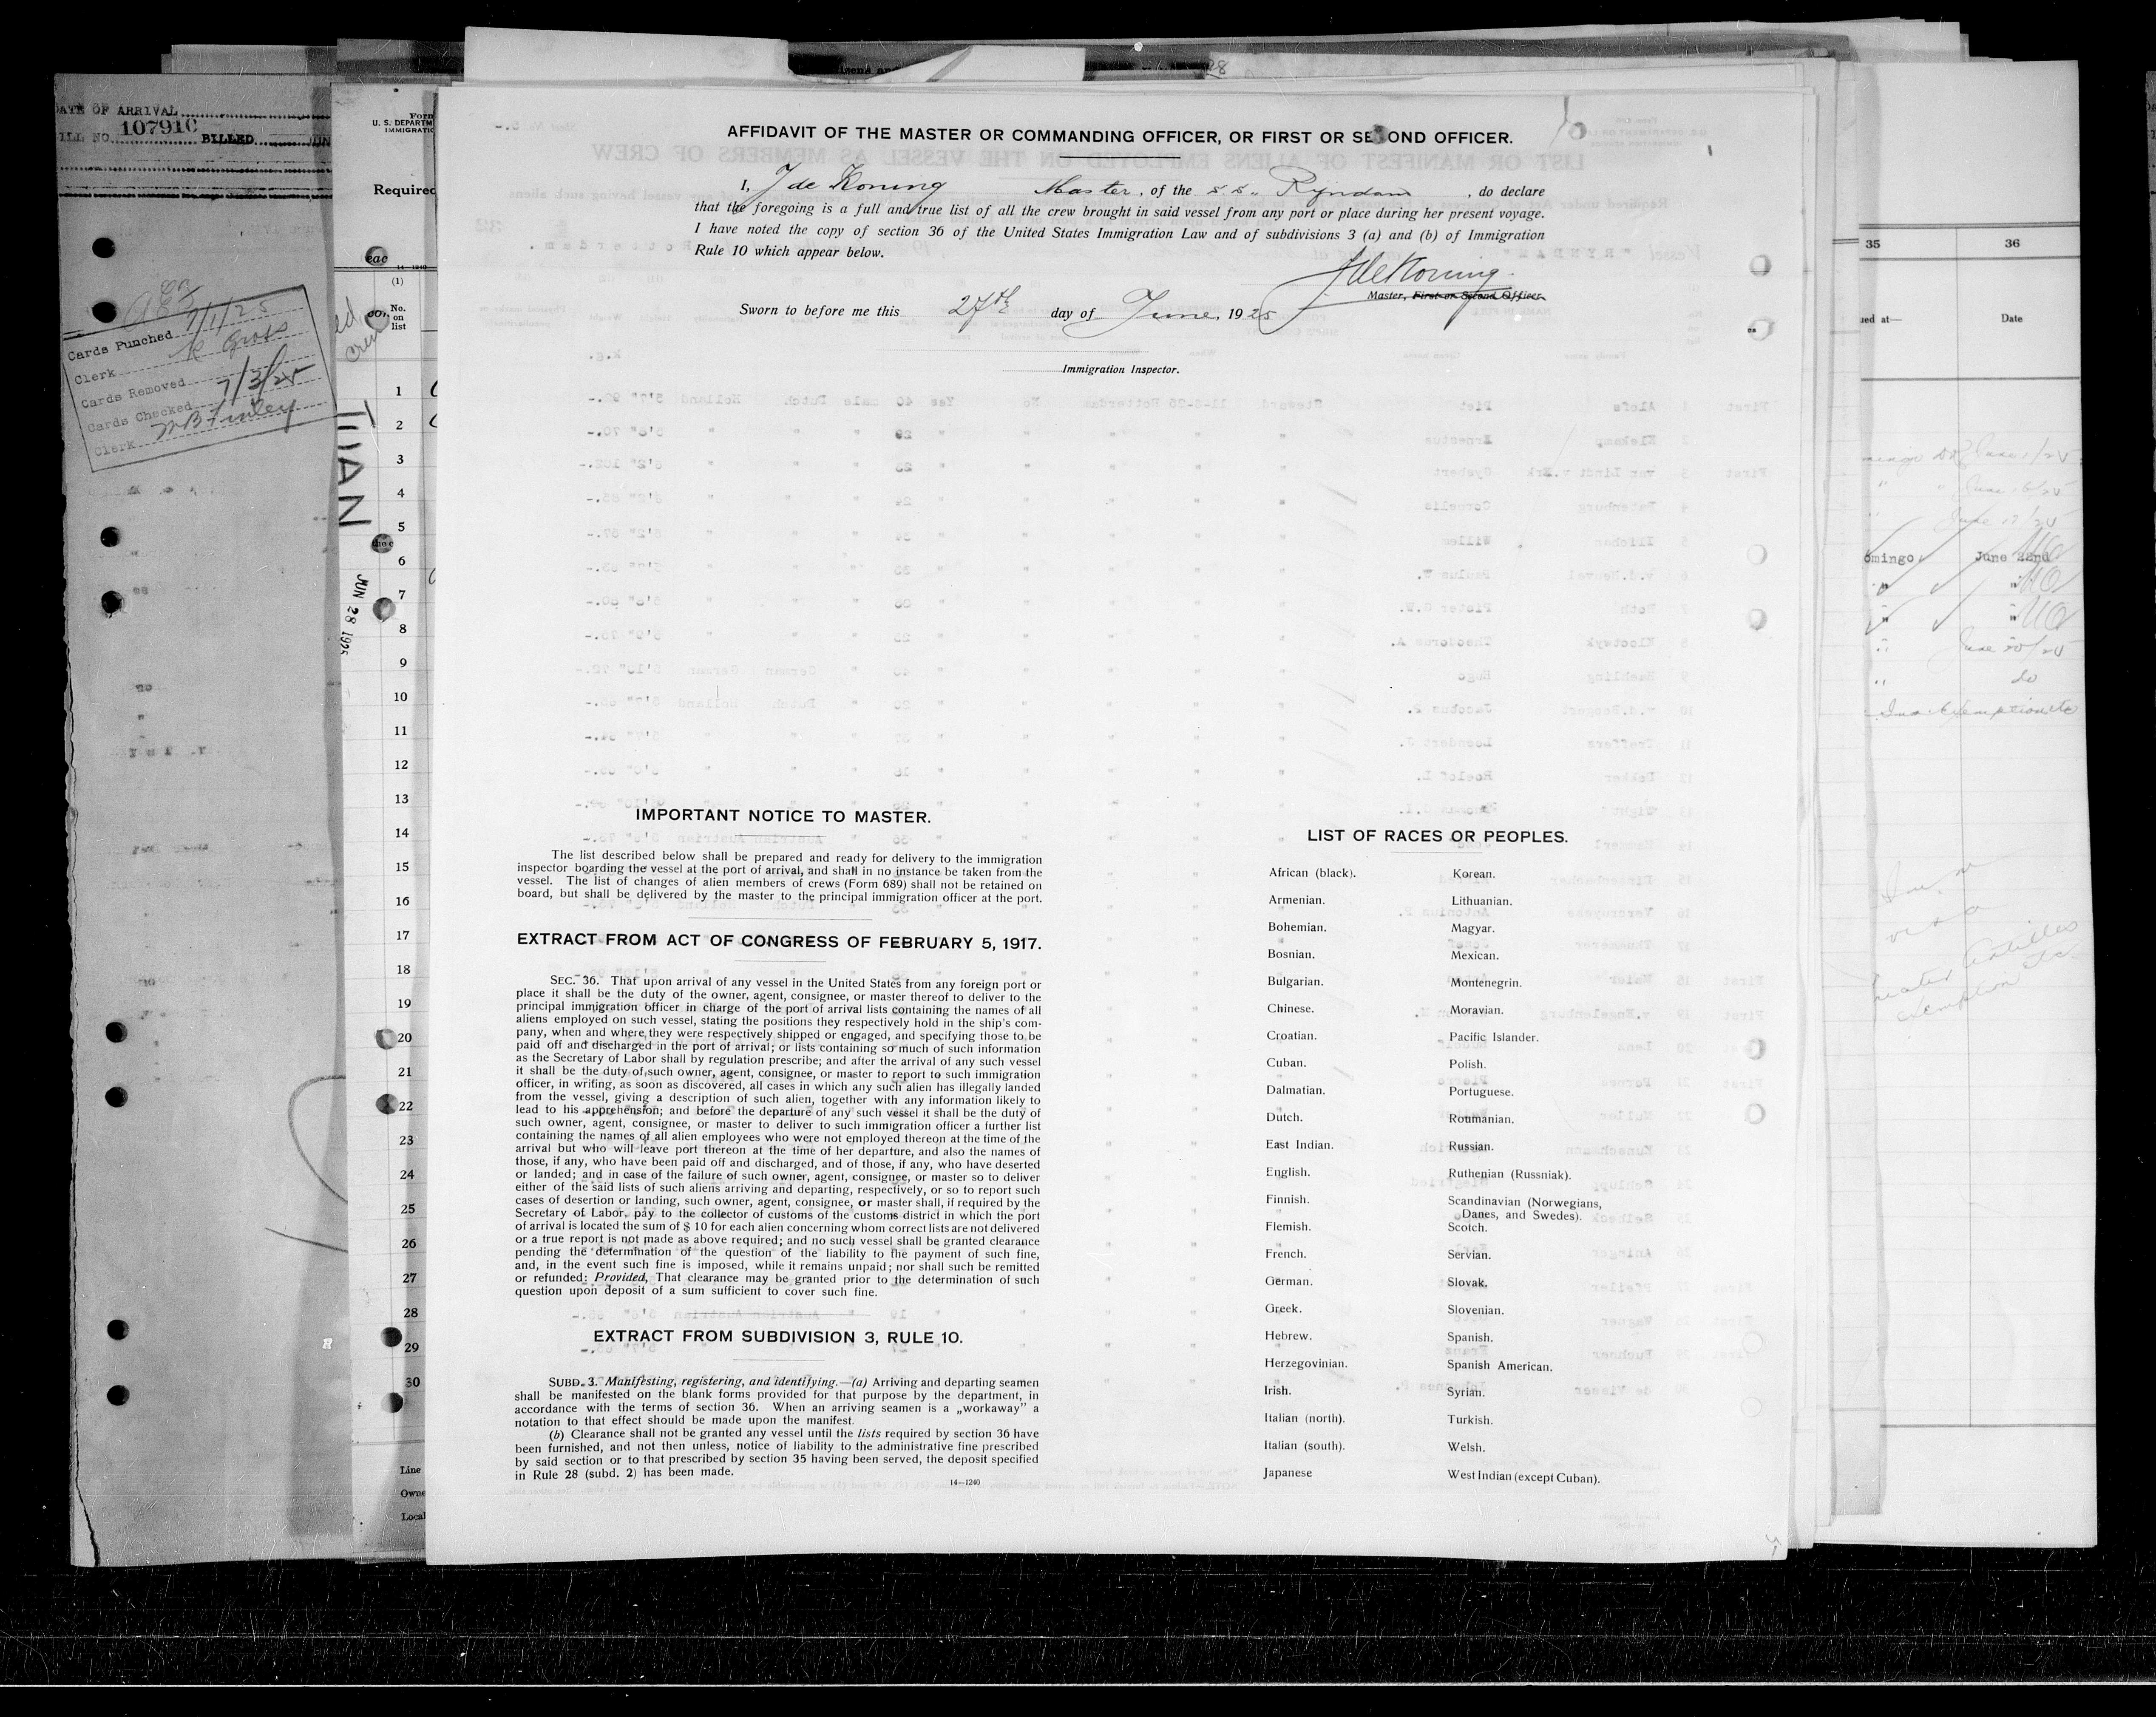 DATE OF ARRIVAL
BILL NO. 107910 BILLED JUN
Cards Punched 7/1/25
Clerk
Cards Removed
Cards Checked 7/3/25
Clerk
Form
U. S. DEPARTM
IMMIGRATIO
Required
eac
14-1240
(1)
No.
on
list
JUN 28 1925
1
2
3
4
5
6
7
8
9
10
11
12
13
14
15
16
17
18
19
20
21
22
23
24
25
26
27
28
29
30
Line
Owne
Local
AFFIDAVIT OF THE MASTER OR COMMANDING OFFICER, OR FIRST OR SECOND OFFICER.
I, J de Koning Master, of the S.S. Ryndam, do declare
that the foregoing is a full and true list of all the crew brought in said vessel from any port or place during her present voyage.
I have noted the copy of section 36 of the United States Immigration Law and of subdivisions 3 (a) and (b) of Immigration
Rule 10 which appear below.
J de Koning.
Master, First or Second Officer.
Sworn to before me this 27th day of June, 1925
Immigration Inspector.
IMPORTANT NOTICE TO MASTER.
The list described below shall be prepared and ready for delivery to the immigration
inspector boarding the vessel at the port of arrival, and shall in no instance be taken from the
vessel. The list of changes of alien members of crews (Form 689) shall not be retained on
board, but shall be delivered by the master to the principal immigration officer at the port.
EXTRACT FROM ACT OF CONGRESS OF FEBRUARY 5, 1917.
SEC. 36. That upon arrival of any vessel in the United States from any foreign port or
place it shall be the duty of the owner, agent, consignee, or master thereof to deliver to the
principal immigration officer in charge of the port of arrival lists containing the names of all
aliens employed on such vessel, stating the positions they respectively hold in the ship's com-
pany, when and where they were respectively shipped or engaged, and specifying those to be
paid off and discharged in the port of arrival; or lists containing so much of such information
as the Secretary of Labor shall by regulation prescribe; and after the arrival of any such vessel
it shall be the duty of such owner, agent, consignee, or master to report to such immigration
officer, in writing, as soon as discovered, all cases in which any such alien has illegally landed
from the vessel, giving a description of such alien, together with any information likely to
lead to his apprehension; and before the departure of any such vessel it shall be the duty of
such owner, agent, consignee, or master to deliver to such immigration officer a further list
containing the names of all alien employees who were not employed thereon at the time of the
arrival but who will leave port thereon at the time of her departure, and also the names of
those, if any, who have been paid off and discharged, and of those, if any, who have deserted
or landed; and in case of the failure of such owner, agent, consignee, or master so to deliver
either of the said lists of such aliens arriving and departing, respectively, or so to report such
cases of desertion or landing, such owner, agent, consignee, or master shall, if required by the
Secretary of Labor, pay to the collector of customs of the customs district in which the port
of arrival is located the sum of $ 10 for each alien concerning whom correct lists are not delivered
or a true report is not made as above required; and no such vessel shall be granted clearance
pending the determination of the question of the liability to the payment of such fine,
and, in the event such fine is imposed, while it remains unpaid; nor shall such be remitted
or refunded: Provided, That clearance may be granted prior to the determination of such
question upon deposit of a sum sufficient to cover such fine.
EXTRACT FROM SUBDIVISION 3, RULE 10.
SUBD. 3. Manifesting, registering, and identifying.—(a) Arriving and departing seamen
shall be manifested on the blank forms provided for that purpose by the department, in
accordance with the terms of section 36. When an arriving seamen is a „workaway” a
notation to that effect should be made upon the manifest.
(b) Clearance shall not be granted any vessel until the lists required by section 36 have
been furnished, and not then unless, notice of liability to the administrative fine prescribed
by said section or to that prescribed by section 35 having been served, the deposit specified
in Rule 28 (subd. 2) has been made.
14—1240
LIST OF RACES OR PEOPLES.
African (black). Korean.
Armenian. Lithuanian.
Bohemian. Magyar.
Bosnian. Mexican.
Bulgarian. Montenegrin.
Chinese. Moravian.
Croatian. Pacific Islander.
Cuban. Polish.
Dalmatian. Portuguese.
Dutch. Roumanian.
East Indian. Russian.
English. Ruthenian (Russniak).
Finnish. Scandinavian (Norwegians,
Danes, and Swedes).
Flemish. Scotch.
French. Servian.
German. Slovak.
Greek. Slovenian.
Hebrew. Spanish.
Herzegovinian. Spanish American.
Irish. Syrian.
Italian (north). Turkish.
Italian (south). Welsh.
Japanese West Indian (except Cuban).
35 36
ued at— Date
omingo June 22nd